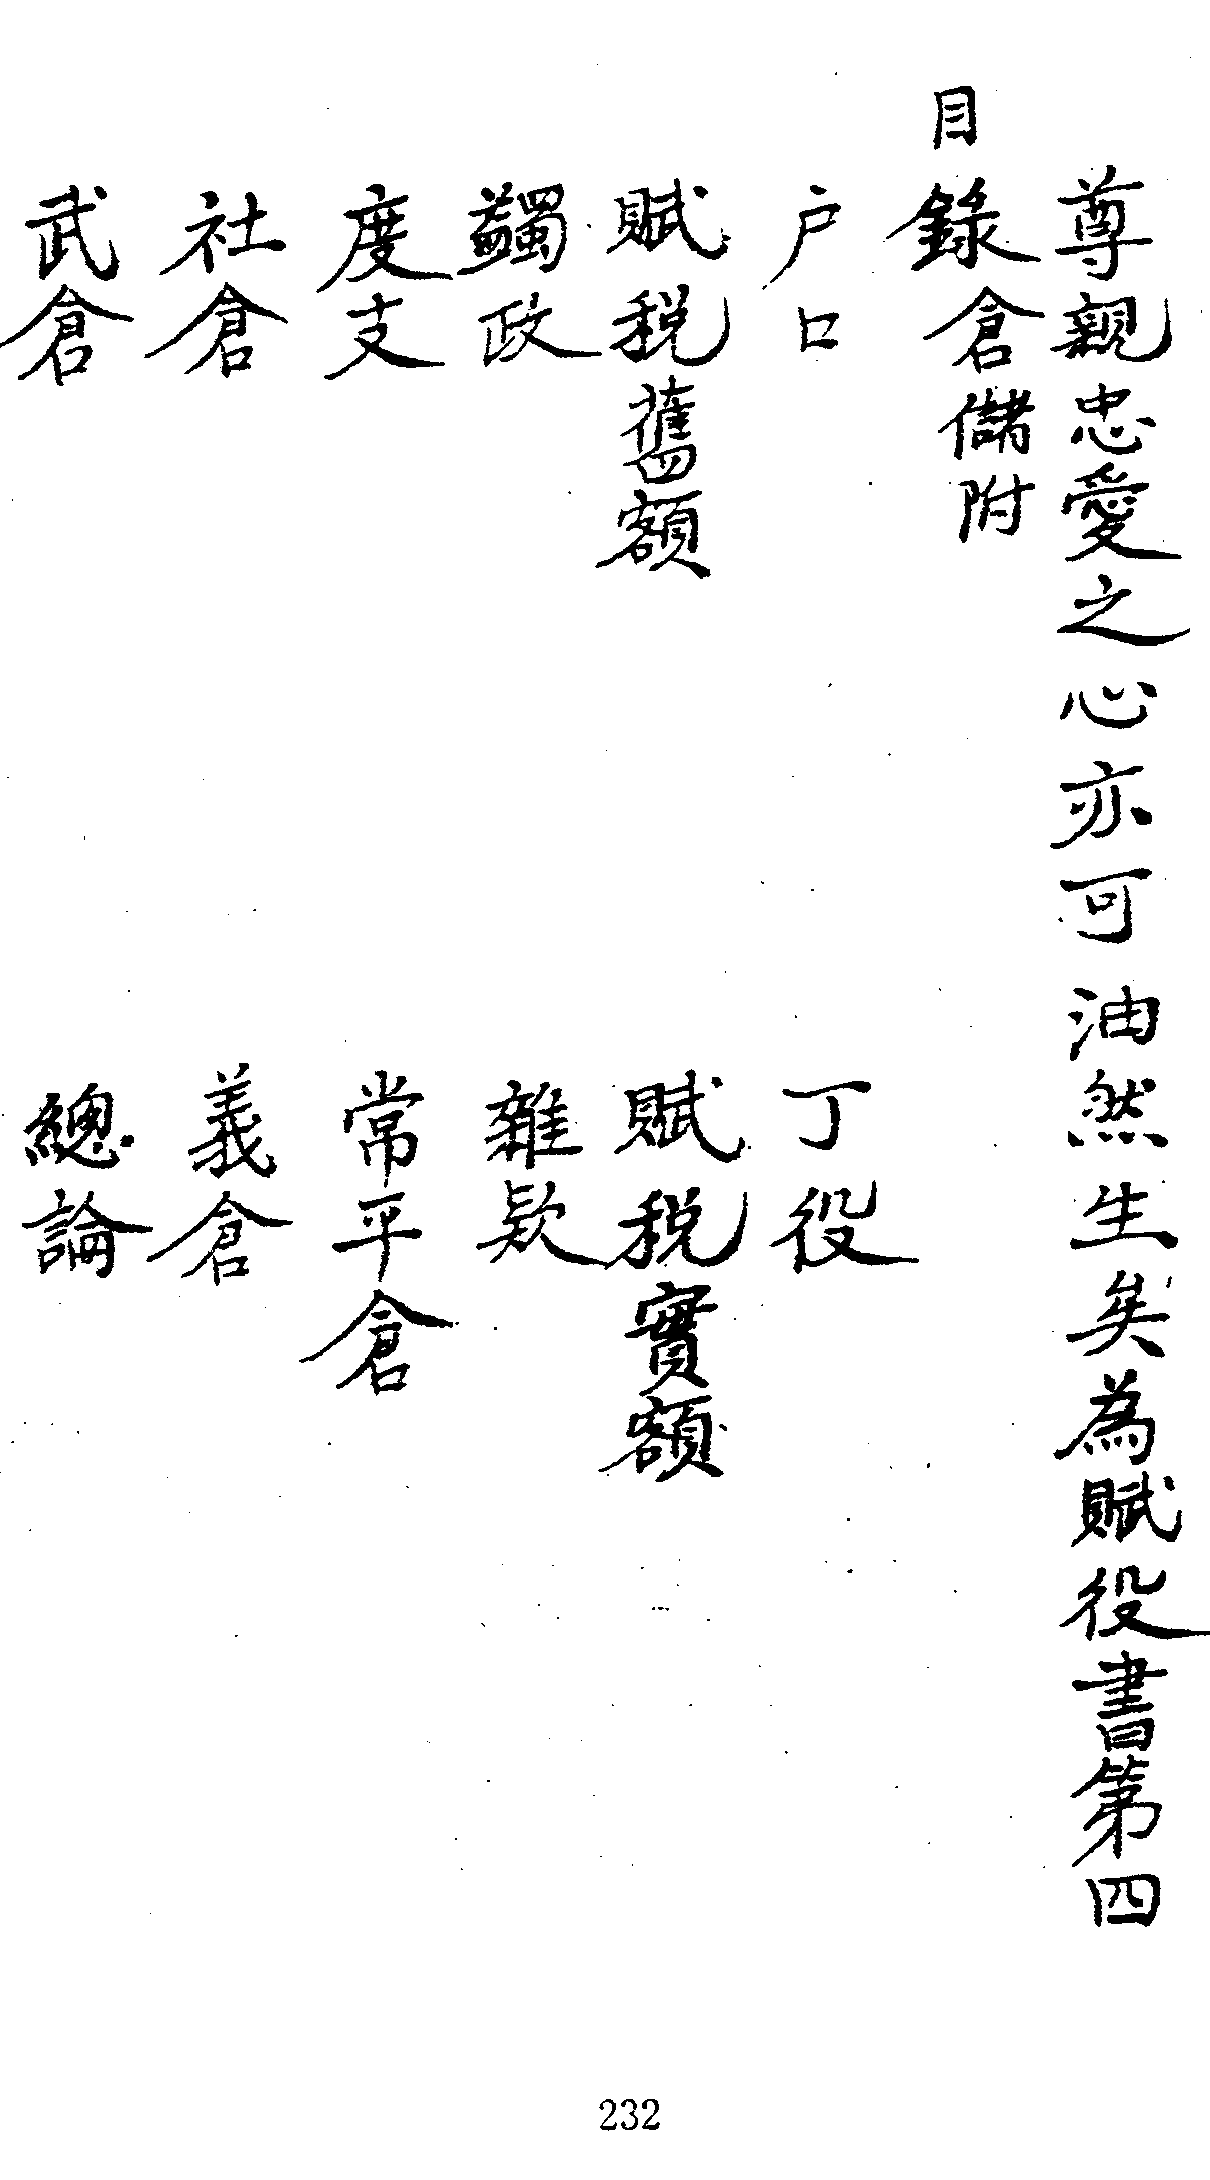 尊親忠愛之心亦可油然生矣為賦役書第四
目錄倉儲附
户口
丁役
賦税舊額
賦税實額
蠲政
雜款
度支
常平倉
社倉
義倉
武倉
總論
232